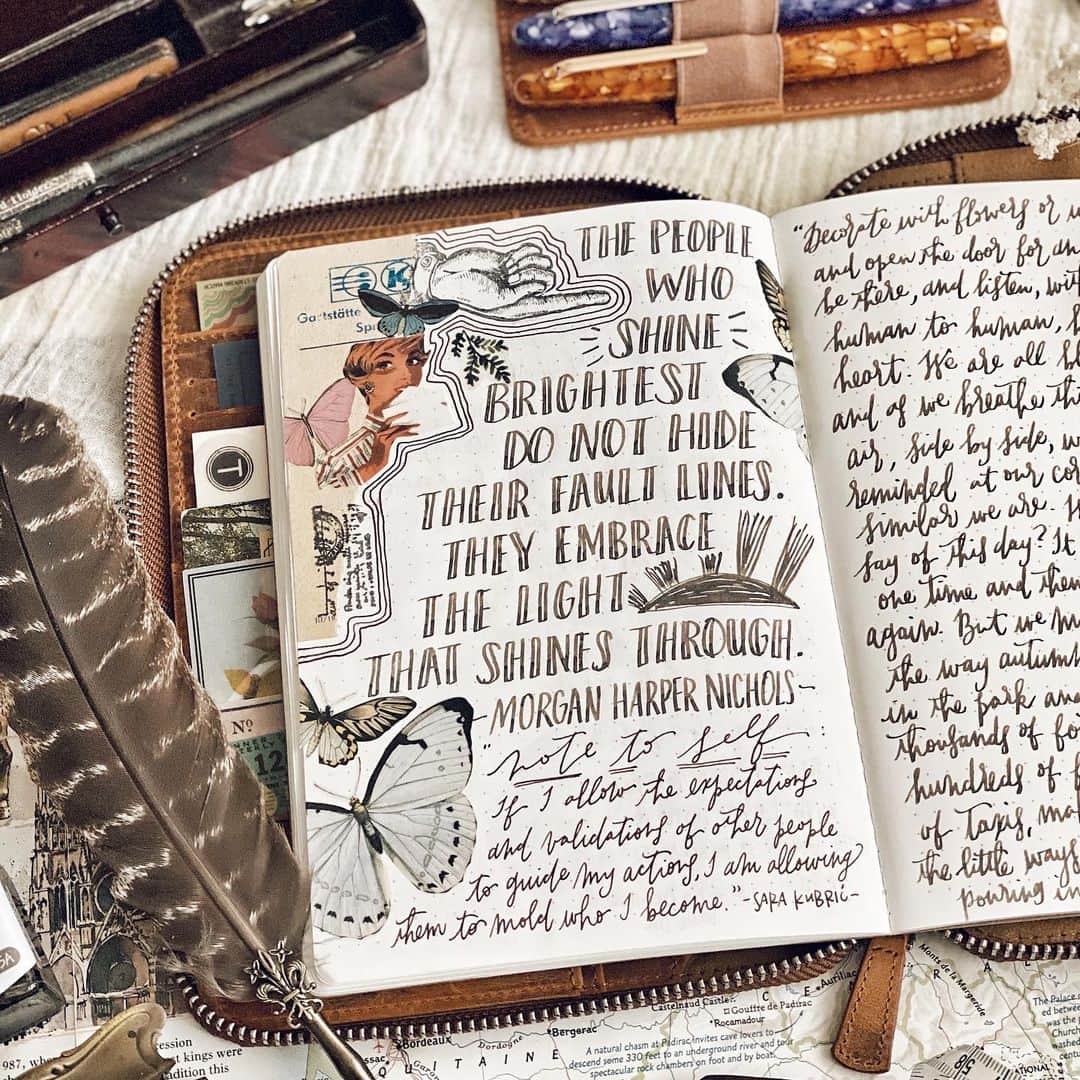 THE PEOPLE
WHO
SHINE
BRIGHTEST
DO NOT HIDE
THEIR FAULT LINES.
THEY EMBRACE
THE LIGHT
THAT SHINES THROUGH.
-MORGAN HARPER NICHOLS-
"note to self:
If I allow the expectations
and validations of other people
to guide my actions, I am allowing
them to mold who I become."-SARA KUBRIC-
"Decorate with flowers or
and open the door for an
be there, and listen, with
human to human, h
heart. We are all b
and as we breathe thi
air, side by side, w
reminded at our cor
similar we are.
say of this day? It
one time and then
again. But we m
the way autumn
in the park and
thousands of fo
hundreds of f
of taxis, ma
the little ways
pouring in
K
Gaststätte
T
Nº
12
987, wh
ression
st kings were
ndition this
Bordeaux
Bergerac
UITAINE
Castelnaud Castle
Gouffre de Padirac
Rocamadour
A natural chasm at Padirac invites cave lovers to
descend some 330 feet to an underground river and tour
spectacular rock chambers on foot and by boat.
Aurillac
Monts de la Margeride
The Palace
ed between
was the
Church
and
NATIONAL